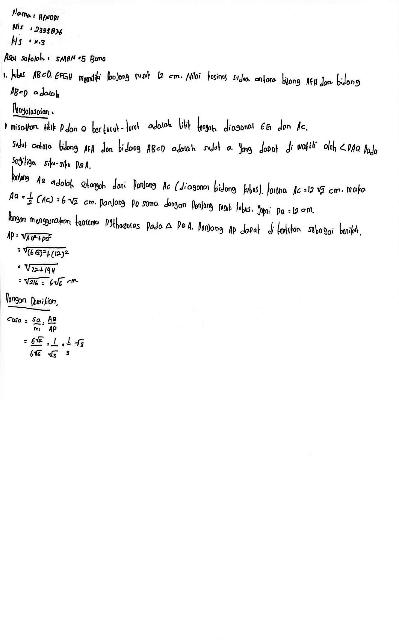 Nama :
Nis :
Kls : x.3
Asal sekolah : SMAN 5 Bone
1. kubus ABCD.EFGH memiliki panjang rusuk 12 cm. Nilai kosinus sudut antara bidang AFH dan bidang
ABCD adalah
Penyelesaian.
misalkan titik P dan Q berturut-turut adalah titik tengah diagonal EG dan AC.
sudut antara bidang AFH dan bidang ABCD adalah sudut a yang dapat di wakili oleh <PAQ Pada
segitiga siku-siku PQA.
Panjang AQ adalah setengah dari Panjang AC (diagonal bidang kubus). karena AC = 12 √2 cm. maka
AQ = 1/2 (AC) = 6 √2 cm. Panjang PQ sama dengan Panjang rusuk kubus. yaitu PQ = 12 cm.
Dengan menggunakan teorema Pythagoras Pada △ PQA. Panjang AP dapat di tentukan sebagai berikut.
AP = √AQ²+PQ²
= √(6√2)²+(12)²
= √72+144
= √216 = 6√6 cm
Dengan Demikian,
cos a = sa/mi = AQ/AP
= 6√2/6√6 = 1/√3 = 1/3 √3